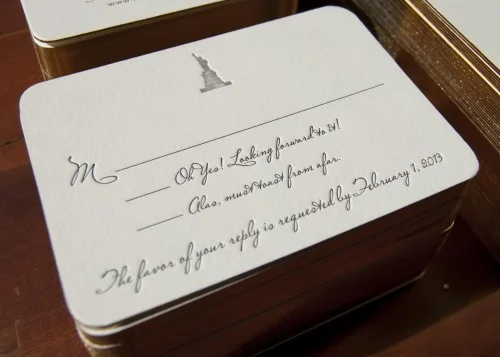 M
Oh Yes! Looking forward to it!
Alas, must toast from afar.
The favor of your reply is requested by February 1, 2013